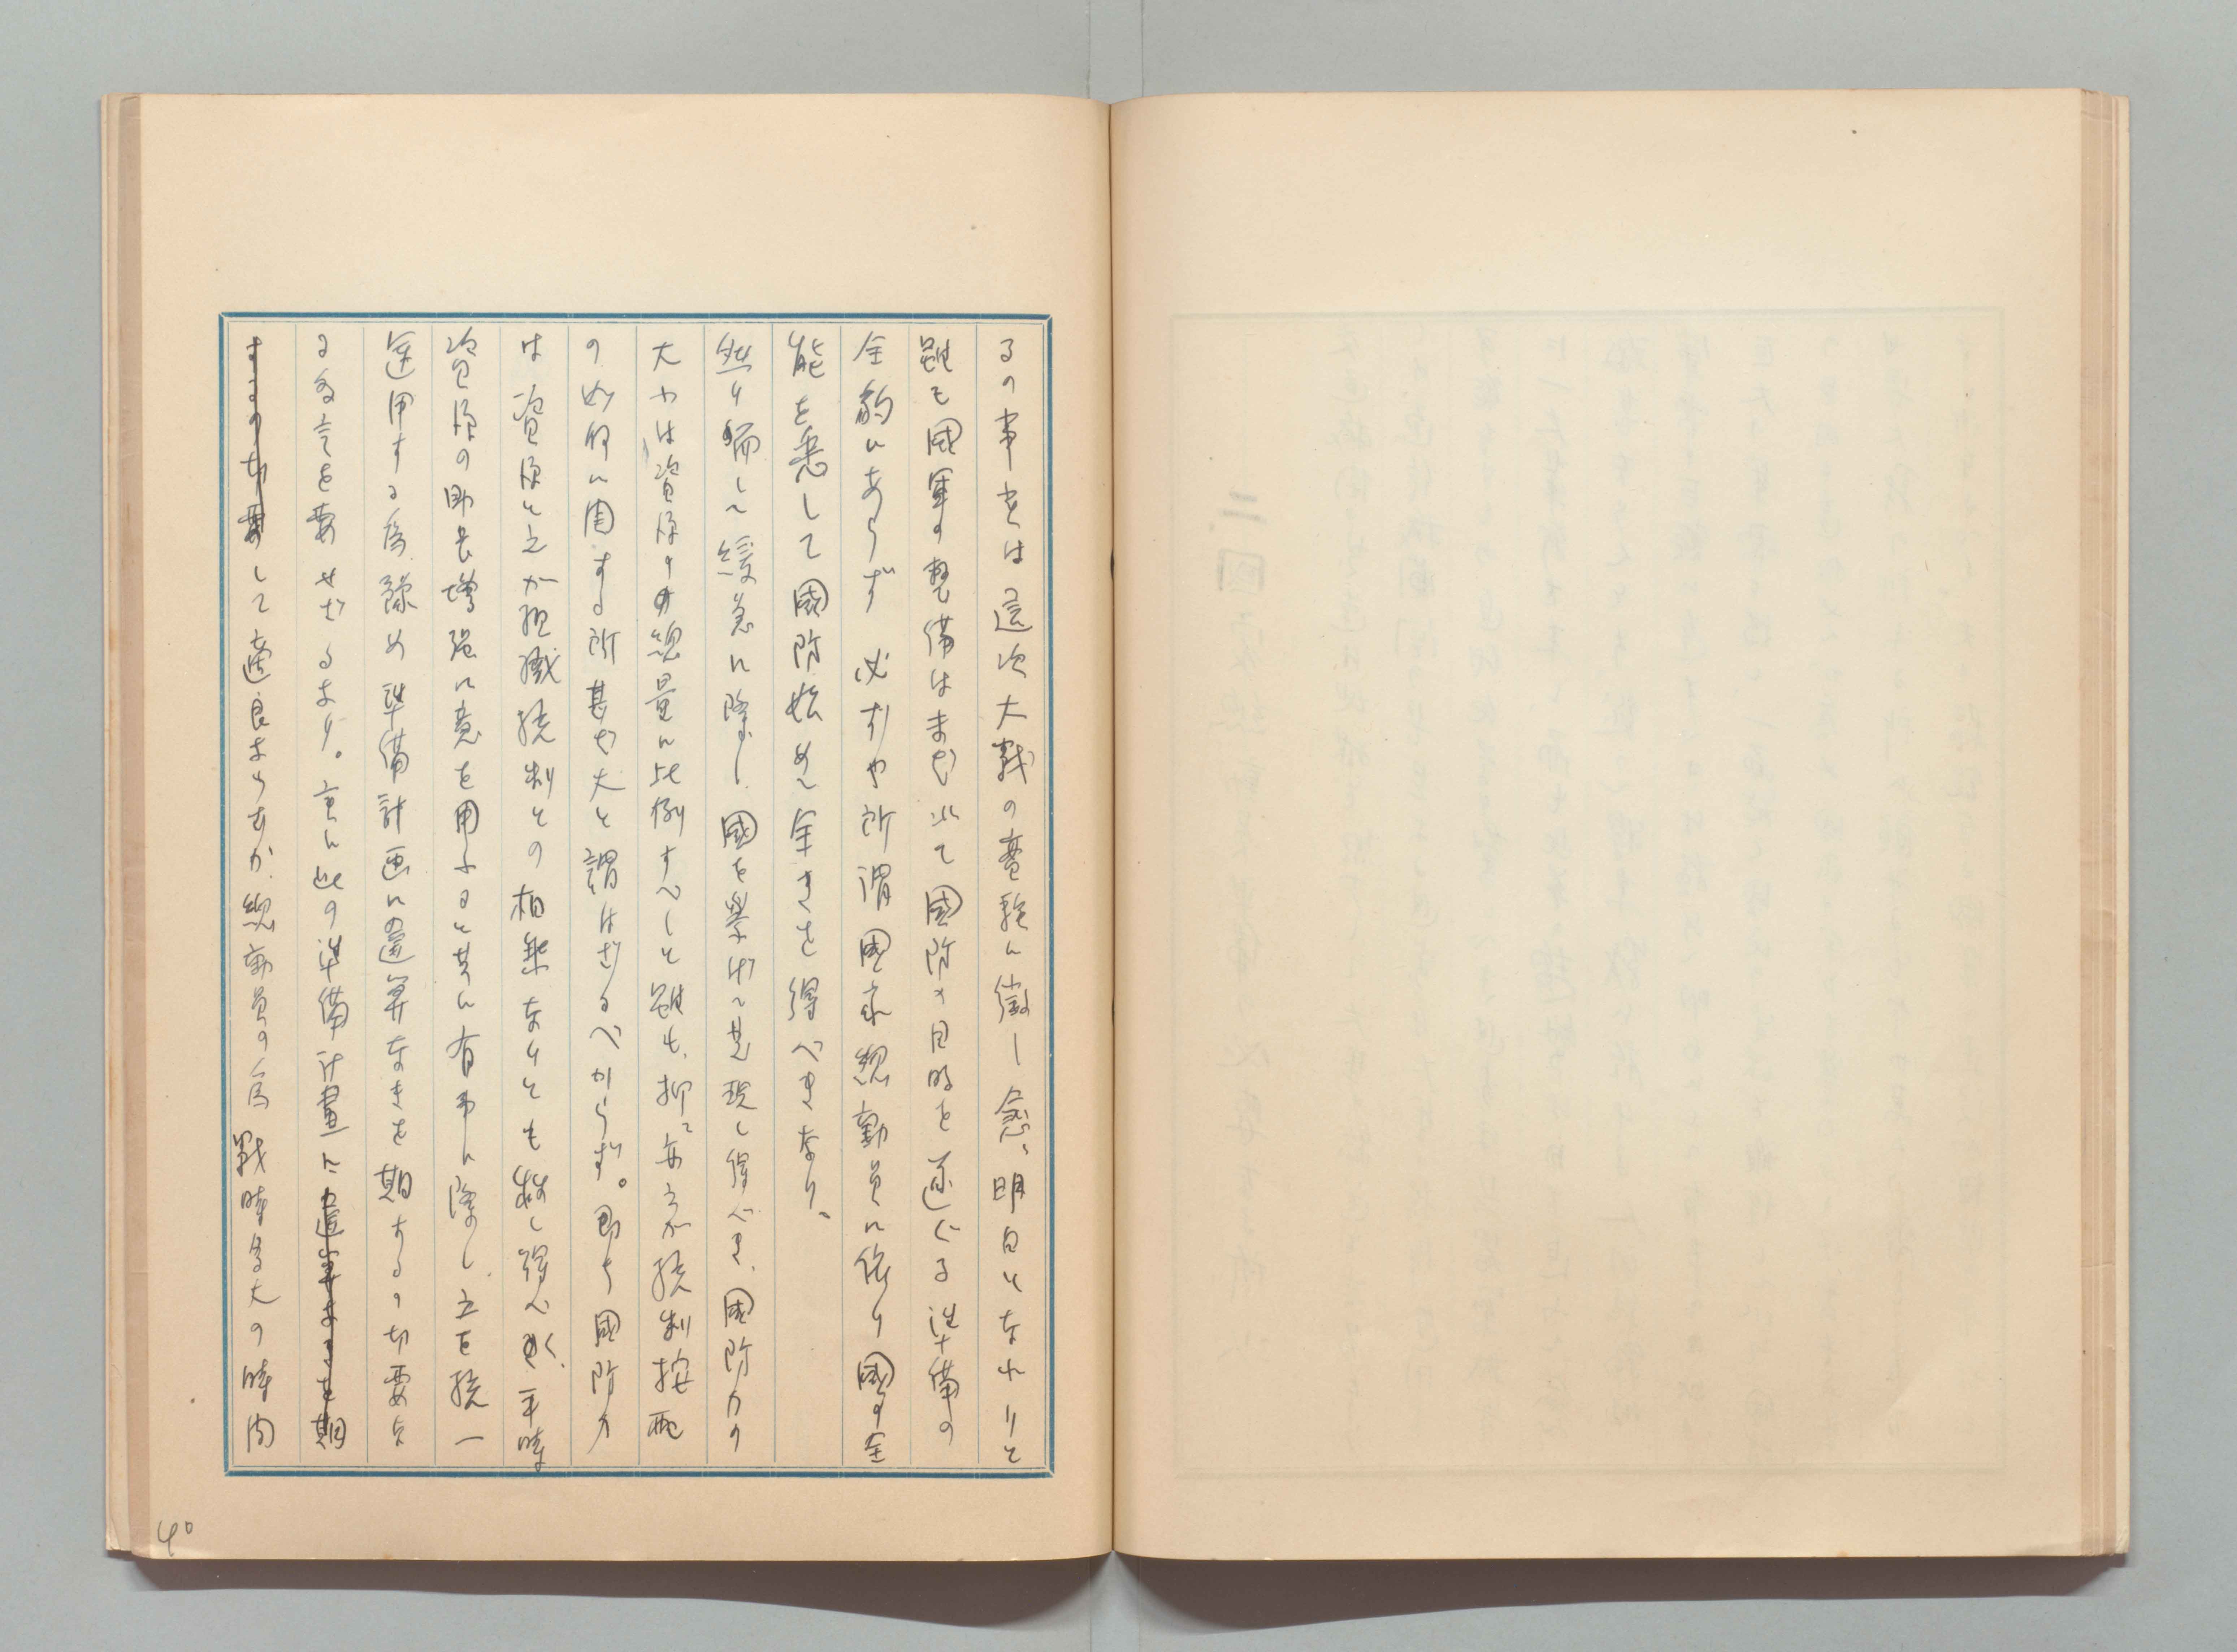 るの事とは這次大戦の實験に徴し愈〻明白となれりと
雖も國軍の整備はまだ以て國防の目的を遂ぐる準備の
全豹にあらず必ずや所謂國家総動員に依り國の全
能を悉して國防始めて全きを得べきなり、
然り而して緩急に際し國を挙げて其現し得べき、國防力の
大小は資源の総量に比例すべしと雖も、抑〻亦之が統制按配
の如何に関する所甚だ大と謂はざるべからず。即ち國防力
は資源と之が組織統制との相乗なりとも称し得べく、平時
資源の助長増強に意を用ふると共に有事に際し之を統一
運用する為豫め準備計画に遺算なきを期するの切要なる
る多言を要せざるなり。章に此の準備計畫に遺算なきを期
するの切要して適良ならむか、総動員の為戦時多大の時間
40